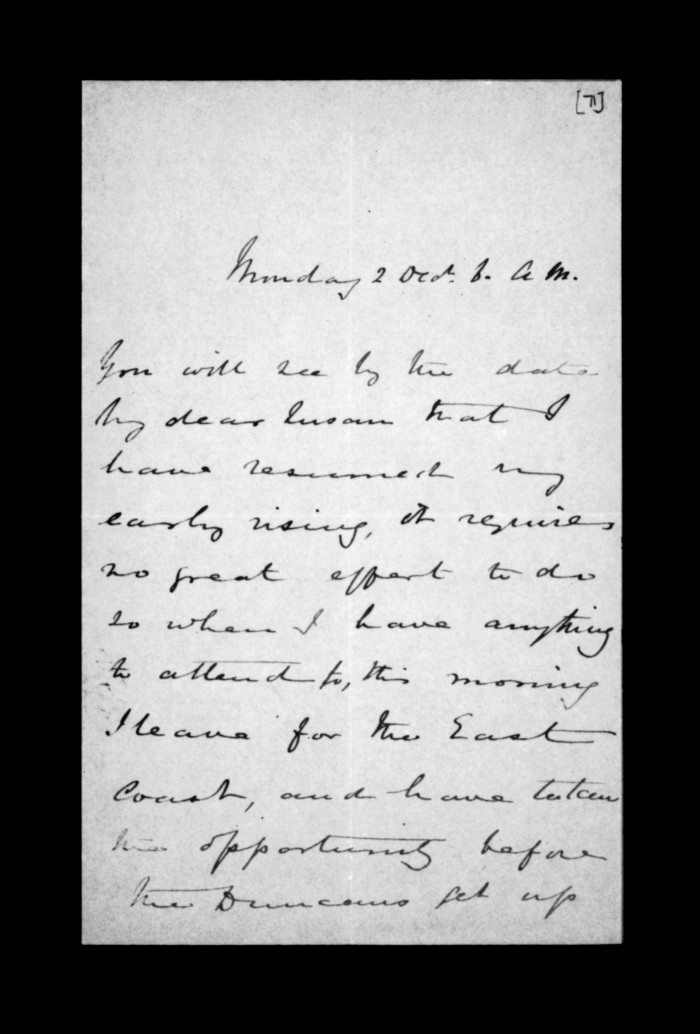 [71]
Monday 2 Decr. 6. A.M.
You will see by the date
My dear Susan that I
have resumed my
early rising, it requires
no great effort to do
so when I have anything
to attend to, this morning
I leave for the East
Coast, and have taken
the opportunity before
the Duncans get up